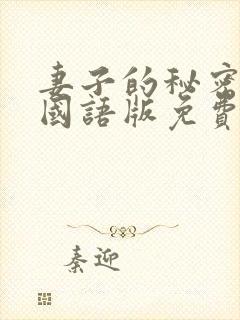 妻子的秘密
國語版免費
秦迎